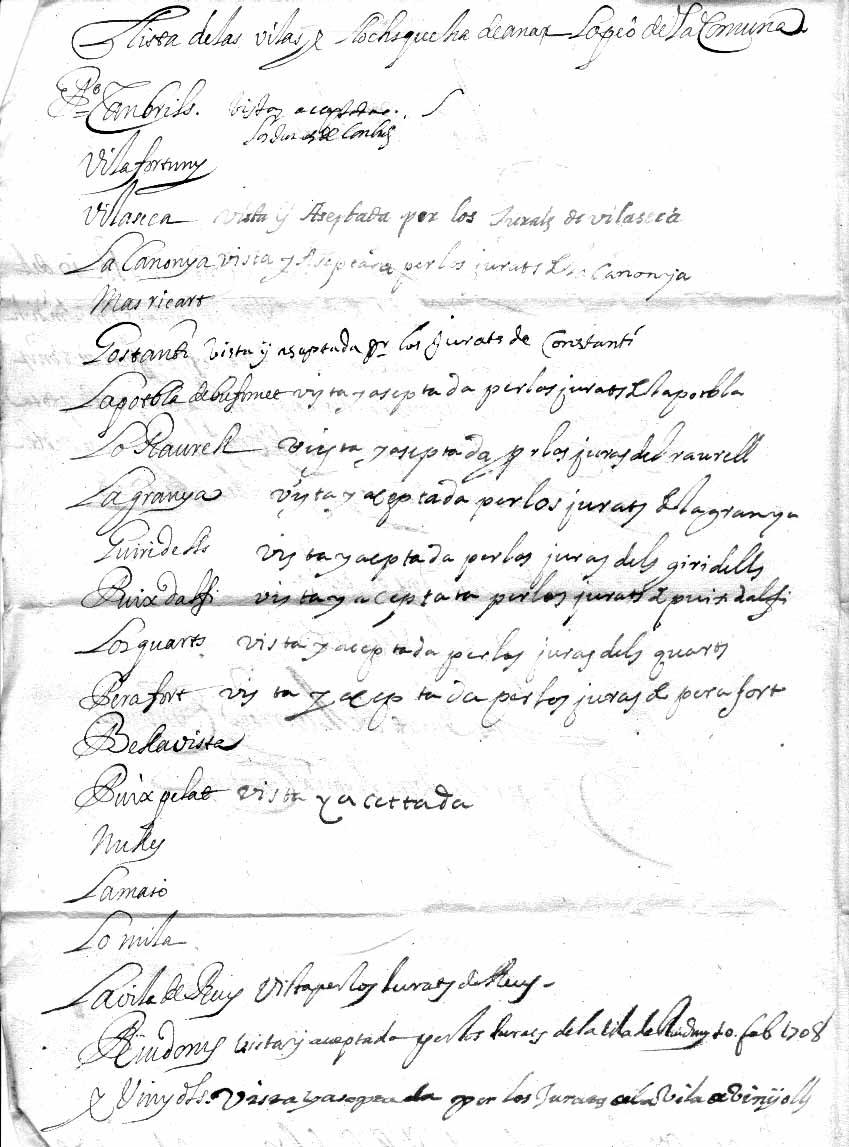 Llista de las vilas y llochs que ha de anar lo peó de La Comuna
Cambrils. vista y aceptada.
los Jurats de Cambrils
Vilafortuny
Vilaseca vista y Aseptada per los Jurats de vilaseca
La Canonya vista y Aseptada per los jurats de la Canonja
Mas ricart
Costanti vista y aseptada pr los Jurats de Constantí
La pobla de bufumet vista y aseptada per los jurats de la pobla
Lo Raurell vista y aseptada pr los juras del raurell
La granya vista y aceptada per los jurats de la granya
Guiridells vista y aceptada per los juras dels giridells
Puix dalfi vista y aceptata per los jurats de puix dalfi
Los quarts vista y aceptada per los juras dels quarts
Perafort vista y aceptada per los juras de perafort
Bellavista
Puix pelat vista y acettada
Nulles
La maso
Lo mila
La vila de Reus Vista per los Jurats de Reus
Riudoms vista y aceptada per los Jurats de la vila de Riudoms 10 feb 1708
y Vinyols. Vista y aseptada per los Jurats de la Vila de Vinyolls